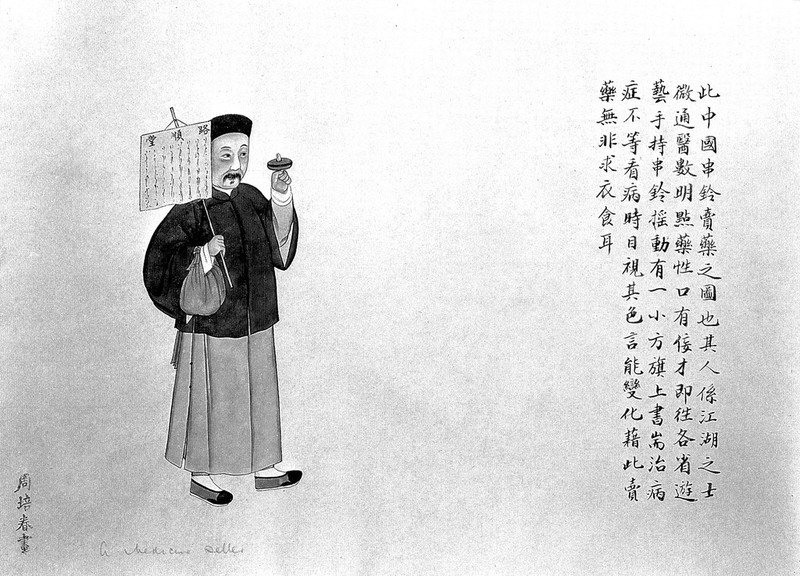 此中國串鈴賣藥之圖也其人係江湖之士
微通醫數明點藥性口有倿才即往各省遊
藝手持串鈴搖動有一小方旗上書耑治病
症不等看病時目視其色言能變化藉此賣
藥無非求衣食耳
路順堂
周培春畫
A medicine seller